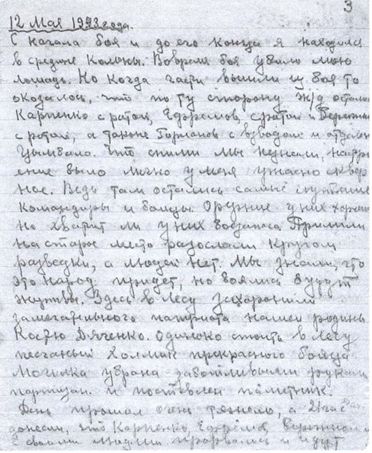 3
12 Мая 1943 года.
С начала боя и до его конца я находился
в средине Колоны. Во время боя убило мою
лошадь. Но когда части вышли из боя то
оказалось, что по ту сторону ж/д остались
Карпенко с ротой, Ефремов, с ротой
с ротой, а также с взводом и
Цымбала. Что с ними мы не знали,
ение было лично у меня ужасно сквер
ное. Ведь там остались самые лучшие
командиры и бойцы. Оружие у них хорошее
но хватит ли у них боезапаса Пришли
на старое место разослали кругом
разведки, а людей нет. Мы знали, что
это народ придет, но боялись будут
жертвы. Здесь в лесу захоронили
замечательного патриота нашей родины
Костю Дяченко. Одиноко стоит в лесу
песчаный холмик прекрасного бойца
Могилка убрана заботливыми руками
партизан и поставлен памятник.
День прошел очень тяжело, а
донесли, что Карпенко, Ефремов
с своими людьми прорвались и идут